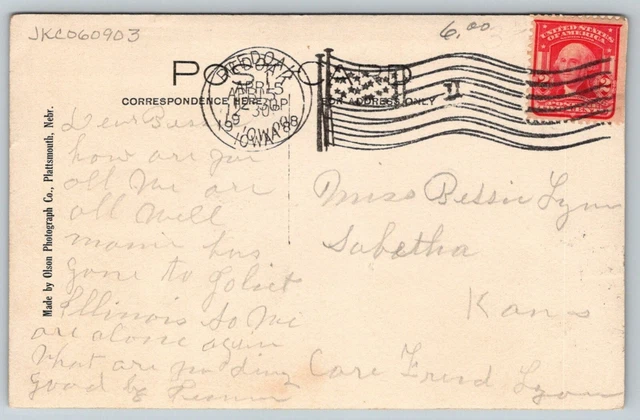 JKC060903
6.00
UNITED STATES
OF AMERICA
POST CARD
CORRESPONDENCE HERE
FOR ADDRESS ONLY
RED OAK
APR 15
IOWA
II
Made by Olson Photograph Co., Plattsmouth, Nebr.
Dear Bessie
how are you
all We are
all Well
mamie has
gone to Joliet
Illinois So We
are alone again
What are you
good by
Miss Bessie Lynn
Sabetha
Kans
Care Fred Lynn